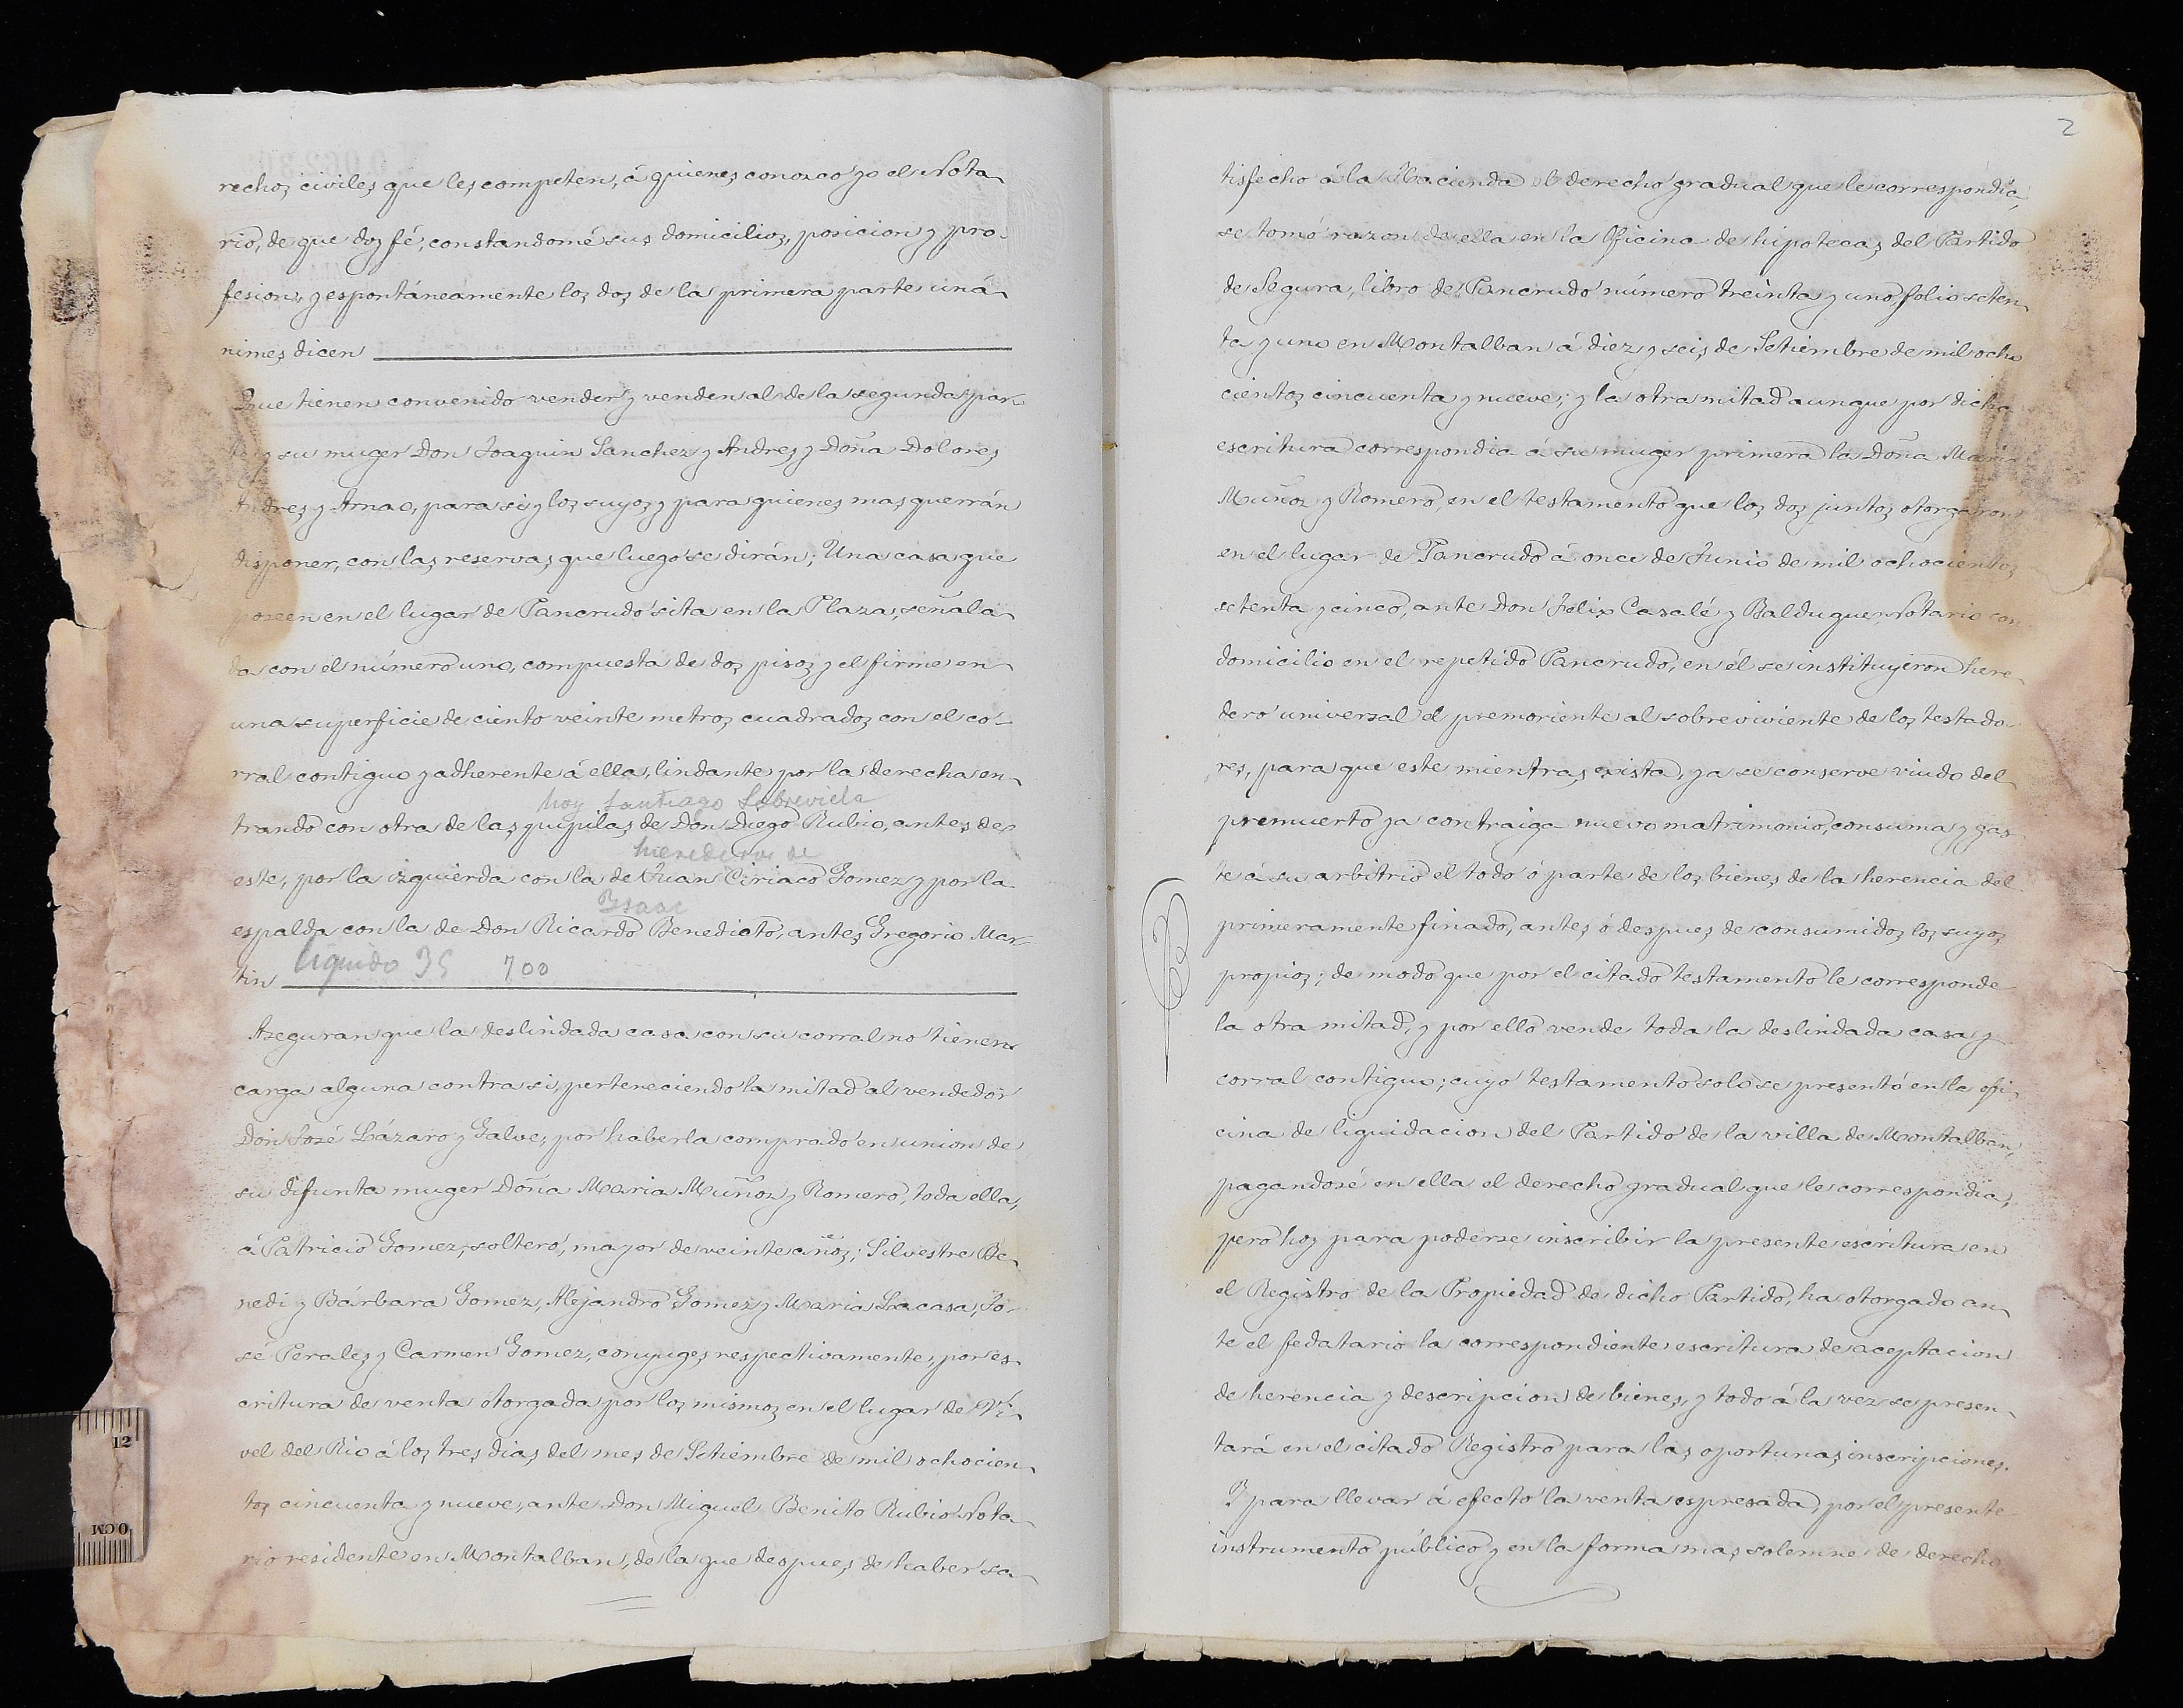 rechos civiles que les competen, á quienes conozco yo el Nota
rio, de que doy fé; constandomé sus domicilios, posicion y pro-
fesion, y espontáneamente los dos de la primera parte uná
nimes dicen
Que tienen convenido vender y venden al de la segunda par
te y su muger Don Joaquin Sanchez y Andres y Doña Dolores
Andres y Arnao, para si y los suyos y para quienes mas querrán
disponer, con las reservas que luego se dirán; Una casa que
poseen en el lugar de Pancrudo sita en la Plaza, señala
da con el número uno, compuesta de dos pisos y el firme en
una superficie de ciento veinte metros cuadrados con el co-
rral contiguo y adherente á ella, lindante por la derecha en
hoy Santiago Sobreviela
trando con otra de las pupilas de Don Diego Rubio, antes de
herederos de
este, por la izquierda con la de Juan Ciriaco Gomez y por la
Isaac
espalda con la de Don Ricardo Benedicto, antes Gregorio Mar
tin liquido 35 700
Aseguran que la deslindada casa con su corral no tienen
carga alguna contra si, perteneciendo la mitad al vendedor
Don José Lázaro y Galve, por haberla comprado en union de
su difunta muger Doña Maria Muñoz y Romero, toda ella,
á Patricio Gomez, soltero, mayor de veinte años; Silvestre Be
nedi y Bárbara Gomez, Alejandro Gomez y Maria Lacasa, Jo-
sé Perales y Carmen Gomez, conyuges respectivamente, por es
critura de venta otorgada por los mismos en el lugar de Vi
vel del Rio á los tres dias del mes de Setiembre de mil ochocien
tos cincuenta y nueve, ante Don Miguel Benito Rubio Nota
rio residente en Montalban, de la que despues de haber sa
2
tisfecho á la Hacienda el derecho gradual que le correspondia,
se tomó razon de ella en la Oficina de hipotecas del Partido
de Segura, libro de Pancrudo número treinta y uno, folio seten
ta y uno en Montalban á diez y seis de Setiembre de mil ocho
cientos cincuenta y nueve; y la otra mitad aunque por dicha
escritura correspondia á su muger primera la Doña Maria
Muñoz y Romero, en el testamento que los dos juntos otorgaron
en el lugar de Pancrudo á once de Junio de mil ochocientos
setenta y cinco, ante Don Felix Casalé y Balduque, Notario con
domicilio en el repetido Pancrudo, en él se instituyeron here
dero universal el premoriente al sobreviviente de los testado
res, para que este mientras exista, ya se conserve viudo del
premuerto ya contraiga nuevo matrimonio, consuma y gas
te á su arbitrio el todo ó parte de los bienes de la herencia del
primeramente finado, antes ó despues de consumidos los suyos
propios; de modo que por el citado testamento le corresponde
la otra mitad, y por ello vende toda la deslindada casa y
corral contiguo; cuyo testamento solo se presentó en la ofi
cina de liquidacion del Partido de la villa de Montalban,
pagandosé en ella el derecho gradual que le correspondia,
pero hoy para poderse inscribir la presente escritura en
el Registro de la Propiedad de dicho Partido, ha otorgado an
te el fedatario la correspondiente escritura de aceptacion
de herencia y descripcion de bienes, y todo á la vez se presen
tará en el citado Registro para las oportunas inscripciones.
Y para llevar á efecto la venta espresada, por el presente
instrumento público y en la forma mas solemne de derecho
12
0 CM